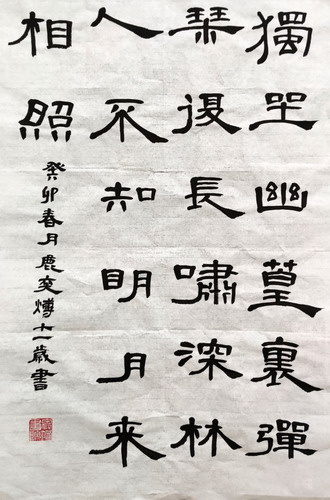 獨坐幽篁裏彈
琴復長嘯深林
人不知明月來
相照
癸卯春月鹿奕十一歲書